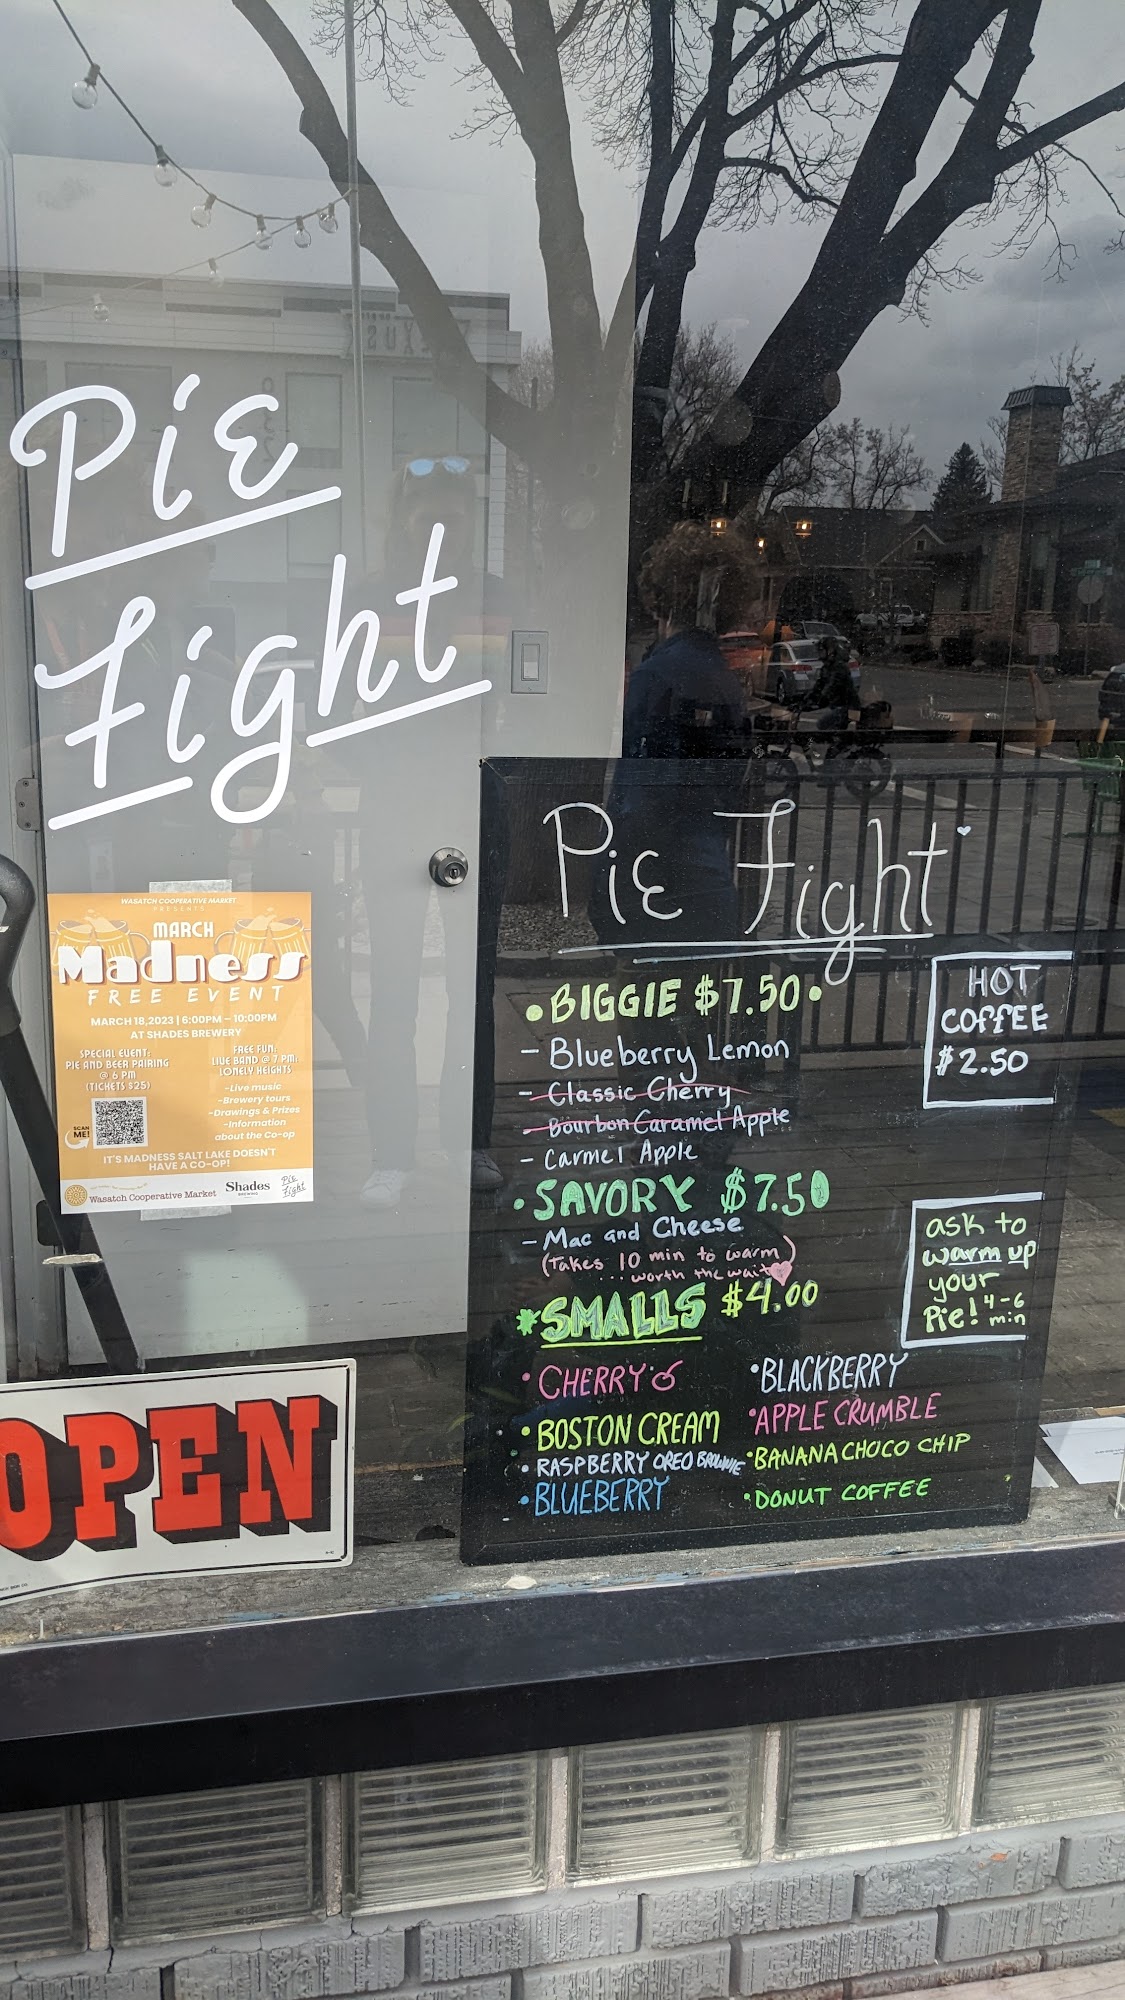 Pie
Fight
WASATCH COOPERATIVE MARKET
PRESENTS
MARCH
Madness
FREE EVENT
MARCH 18,2023 | 6:00PM – 10:00PM
AT SHADES BREWERY
SPECIAL EVENT:
PIE AND BEER PAIRING
@ 6 PM
(TICKETS $25)
SCAN
ME!
FREE FUN:
LIVE BAND @ 7 PM:
LONELY HEIGHTS
-Live music
-Brewery tours
-Drawings & Prizes
-Information
about the Co-op
IT'S MADNESS SALT LAKE DOESN'T
HAVE A CO-OP!
Wasatch Cooperative Market
Shades
BREWING
Pie
Fight
OPEN
Pie Fight
• BIGGIE $7.50 •
- Blueberry Lemon
- Classic Cherry
- Bourbon Caramel Apple
- Carmel Apple
• SAVORY $7.50
- Mac and Cheese
(Takes 10 min to warm)
... worth the wait
* SMALLS $4.00
• CHERRY
• BOSTON CREAM
• RASPBERRY OREO BROWNIE
• BLUEBERRY
• BLACKBERRY
• APPLE CRUMBLE
• BANANA CHOCO CHIP
• DONUT COFFEE
HOT
COFFEE
$2.50
ask to
warm up
your
Pie! 4-6
min